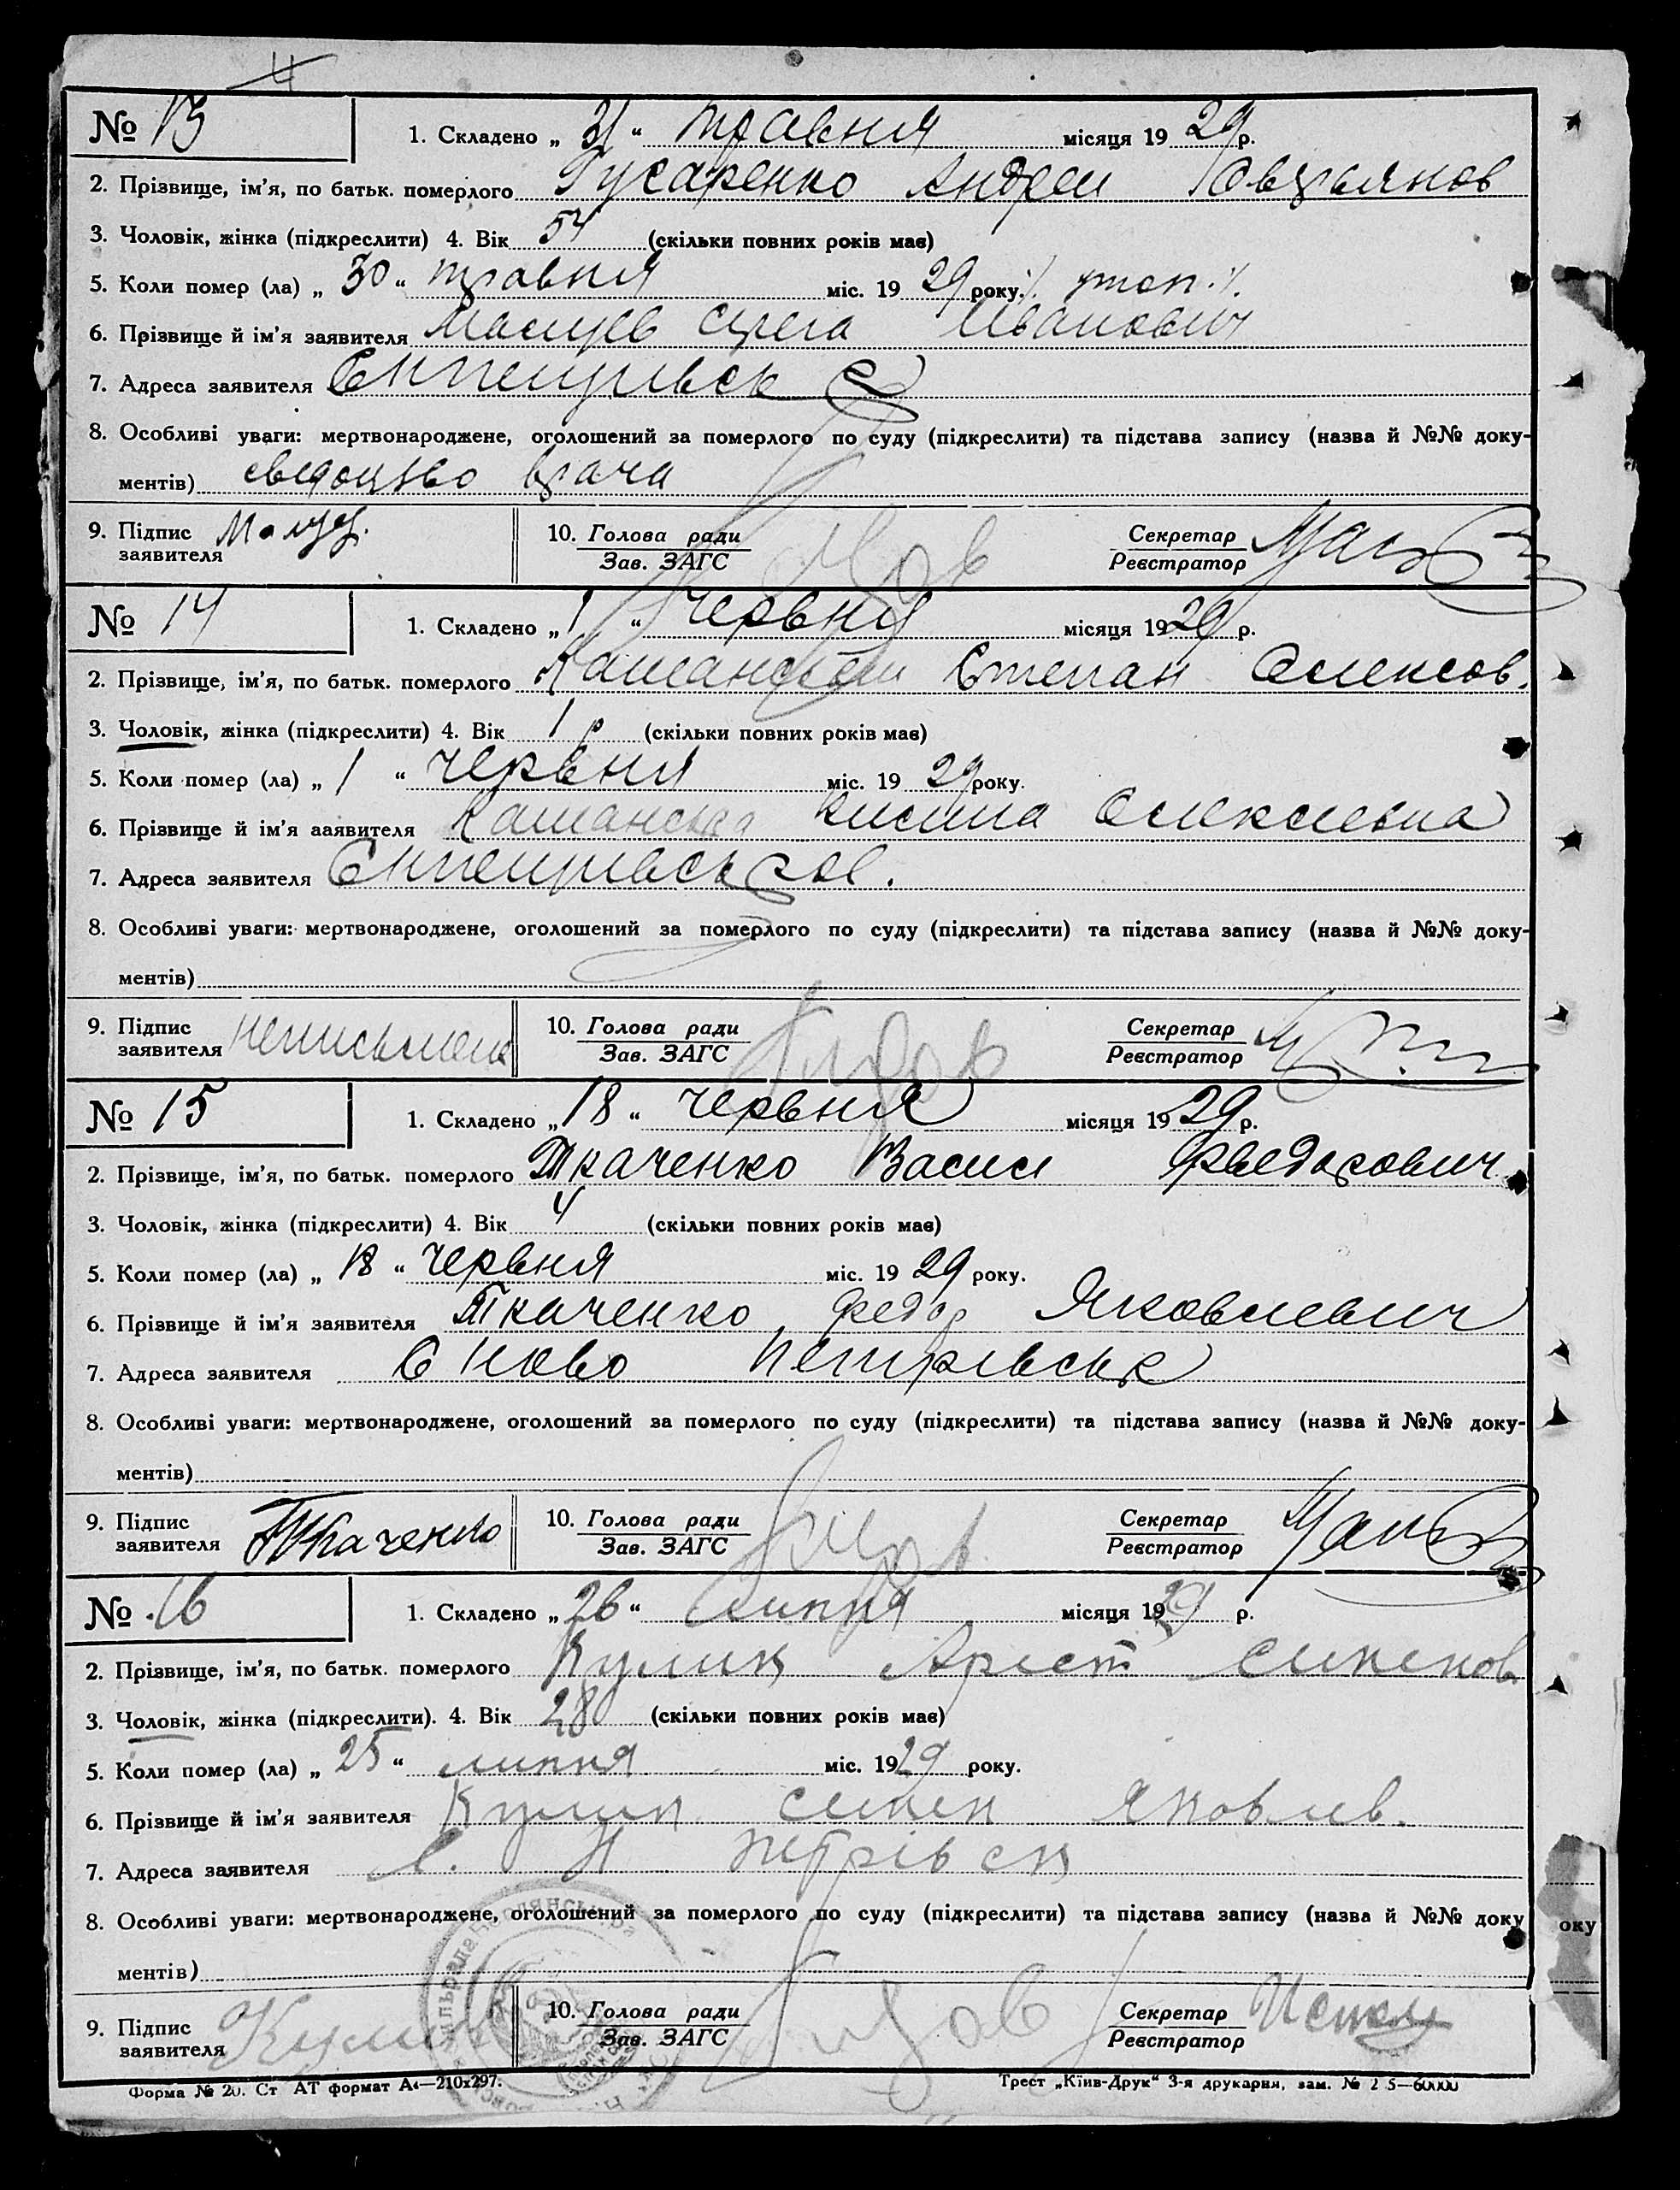 4
№ 13
1. Складено „ 31 “ травня місяця 19 29 р.
2. Прізвище, ім'я, по батьк. померлого Гусаренко Андреи
3. Чоловік, жінка (підкреслити) 4. Вік 54 (скільки повних років має)
5. Коли помер (ла) „ 30 “ травня міс. 19 29 року.
6. Прізвище й ім'я заявителя Иванович
7. Адреса заявителя
8. Особливі уваги: мертвонароджене, оголошений за померлого по суду (підкреслити) та підстава запису (назва й №№ доку-
ментів) врача
9. Підпис заявителя
10. Голова ради Зав. ЗАГС
Секретар Реєстратор
№ 14
1. Складено „ 1 “ червня місяця 19 29 р.
2. Прізвище, ім'я, по батьк. померлого Степан Олексов.
3. Чоловік, жінка (підкреслити) 4. Вік 1 р (скільки повних років має)
5. Коли помер (ла) „ 1 “ червня міс. 19 29 року.
6. Прізвище й ім'я заявителя Кашанська
7. Адреса заявителя
8. Особливі уваги: мертвонароджене, оголошений за померлого по суду (підкреслити) та підстава запису (назва й №№ доку-
ментів)
9. Підпис заявителя неписьмен
10. Голова ради Зав. ЗАГС
Секретар Реєстратор
№ 15
1. Складено „ 18 “ червня місяця 19 29 р.
2. Прізвище, ім'я, по батьк. померлого Ткаченко Васил Фведорович
3. Чоловік, жінка (підкреслити) 4. Вік 4 (скільки повних років має)
5. Коли помер (ла) „ 18 “ червня міс. 19 29 року.
6. Прізвище й ім'я заявителя Ткаченко Федор Яковлевич
7. Адреса заявителя С Ново Петрівськ
8. Особливі уваги: мертвонароджене, оголошений за померлого по суду (підкреслити) та підстава запису (назва й №№ доку-
ментів)
9. Підпис заявителя Ткаченко
10. Голова ради Зав. ЗАГС
Секретар Реєстратор
№ 16
1. Складено „ 26 “ липня місяця 19 29 р.
2. Прізвище, ім'я, по батьк. померлого Кулик Арист
3. Чоловік, жінка (підкреслити). 4. Вік 28 (скільки повних років має)
5. Коли помер (ла) „ 25 “ липня міс. 19 29 року.
6. Прізвище й ім'я заявителя Кулик Яковлев.
7. Адреса заявителя с. Н Петрівск
8. Особливі уваги: мертвонароджене, оголошений за померлого по суду (підкреслити) та підстава запису (назва й №№ доку
оку
ментів)
9. Підпис заявителя Кулик
10. Голова ради Зав. ЗАГС
Секретар Реєстратор
Форма № 20. Ст АТ формат А4—210х297.
Трест „Київ-Друк“ 3-я друкарня, зам. № 2 5—60000